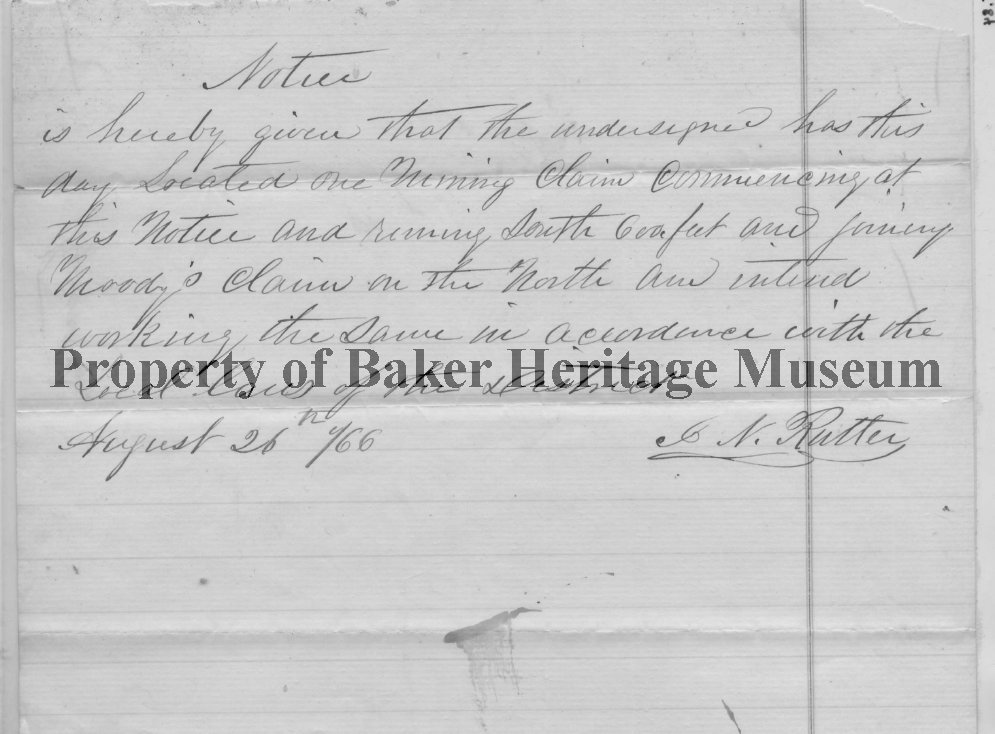 Notice
is hereby given that the undersigned has this
day Located one Mining Claim Commencing at
this Notice and runing South 600 feet and joining
Moody's Claim on the North and intend
working the same in accordence with the
Property of Baker Heritage Museum
Local Laws of the District
August 26th /66
N. Rutter